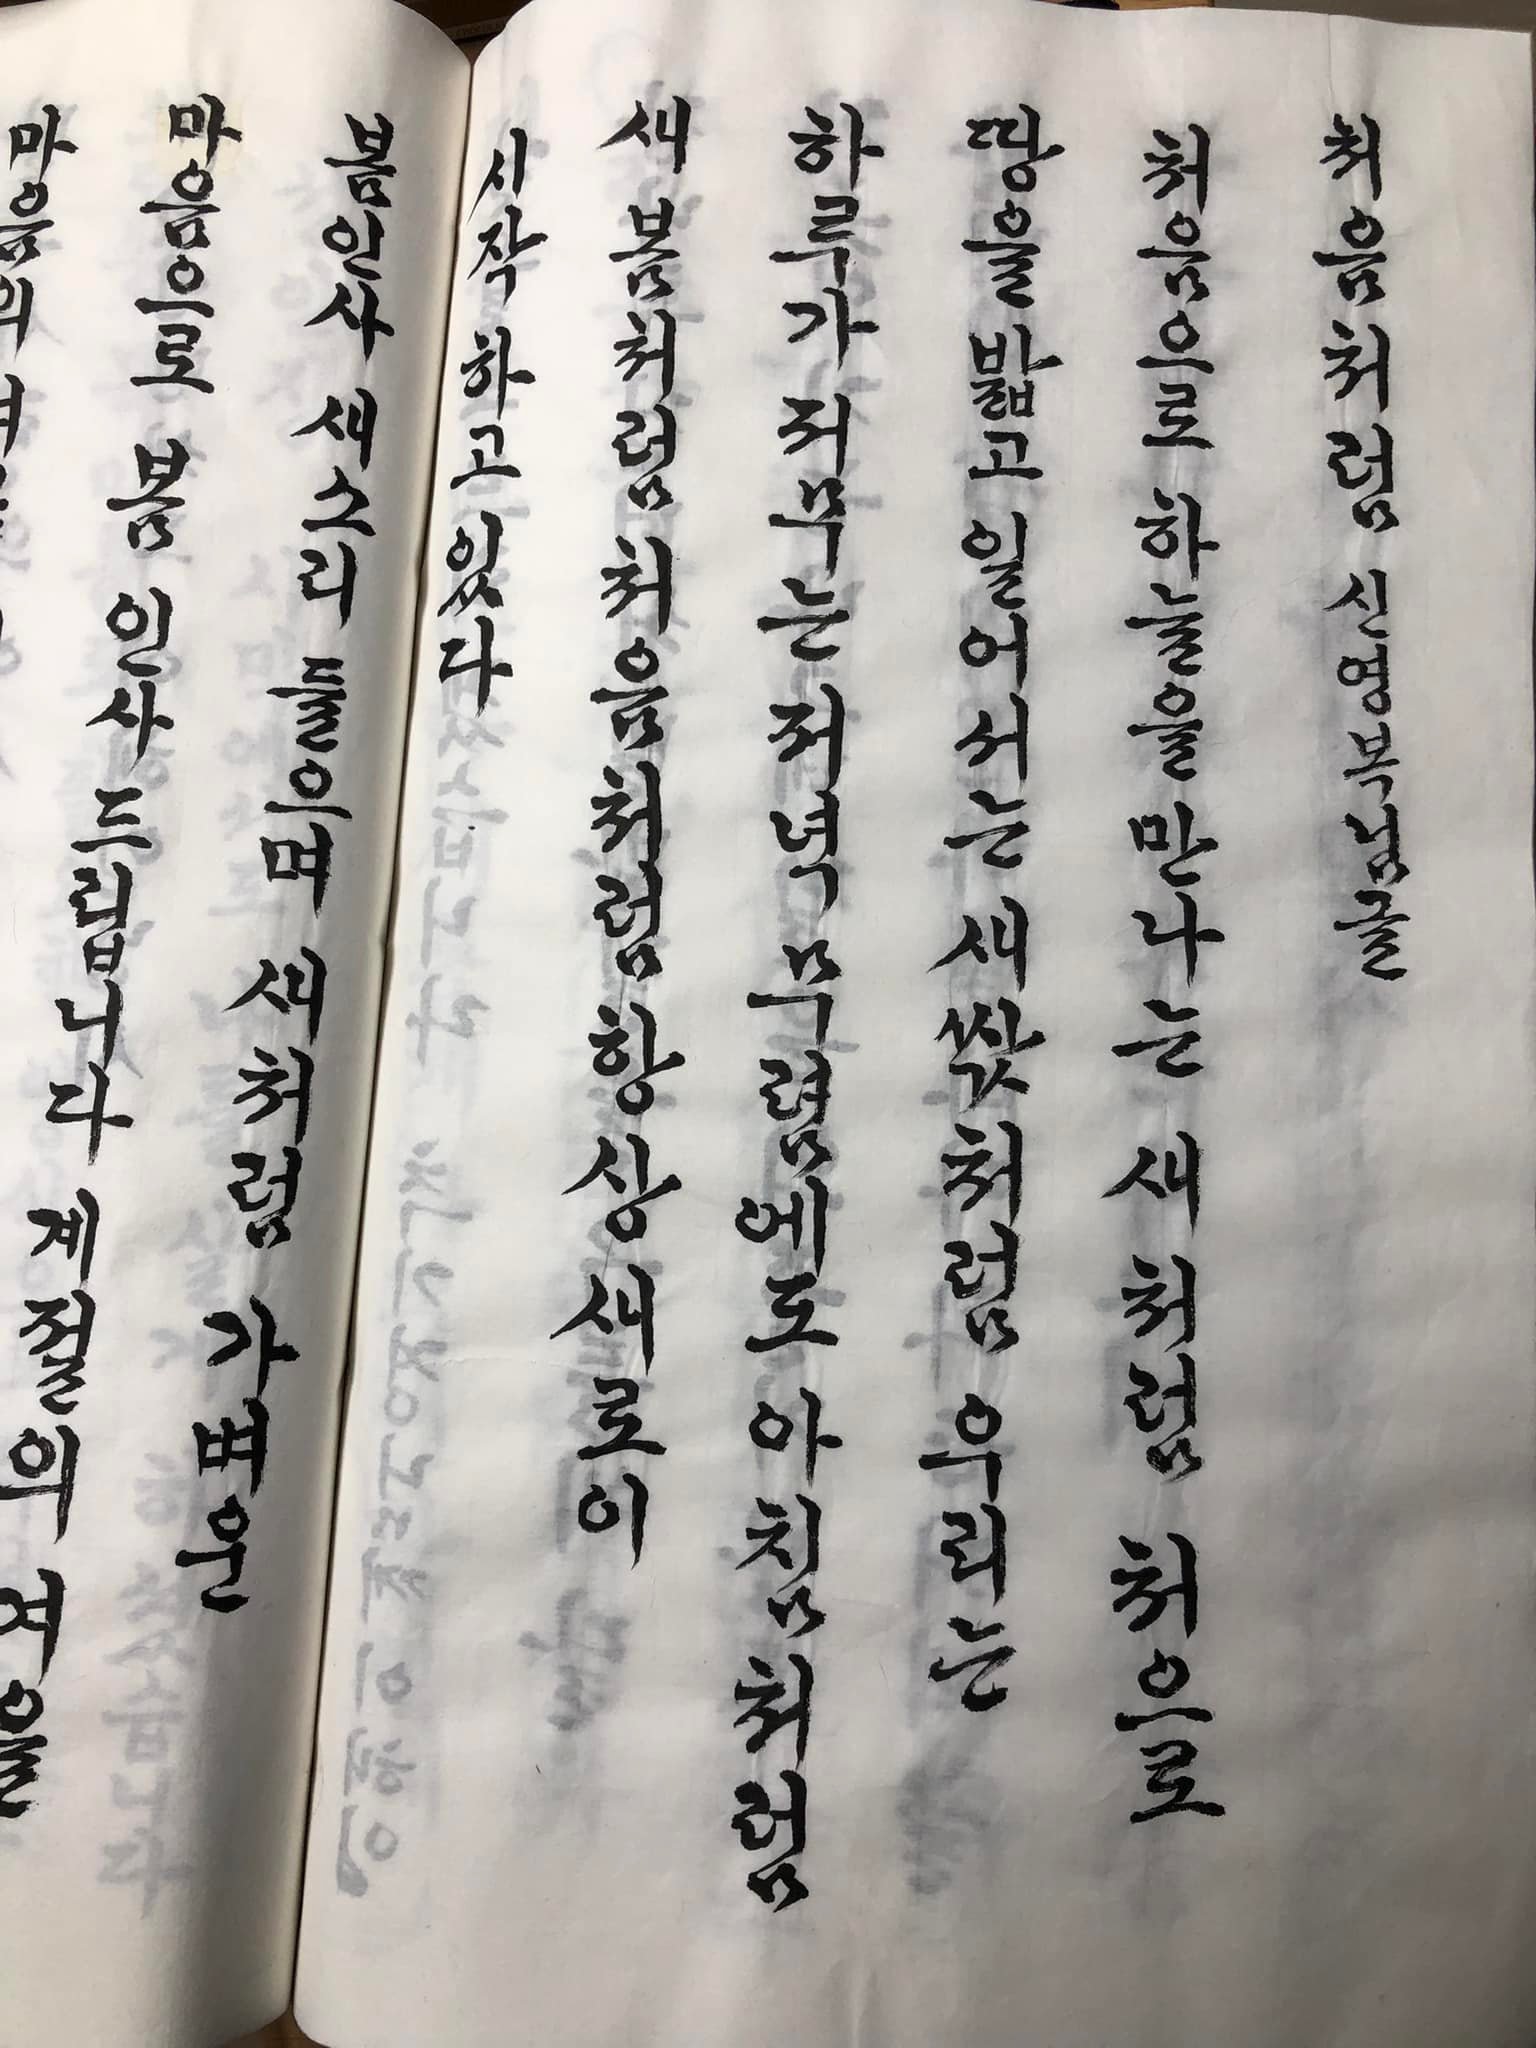 처음처럼 신영복님글
처음으로 하늘을 만나는 새처럼 처으로
땅을 밟고 일어서는 새싻처럼 우리는
하루가 저무는 저녁 무렴에도 아침처럼
새 봄처럼 처음처럼 항상 새로이
시작 하고 있다
봄인사 새소리 들으며 새처럼 가벼운
마음으로 봄 인사 드립니다 계절의 여울
마음의